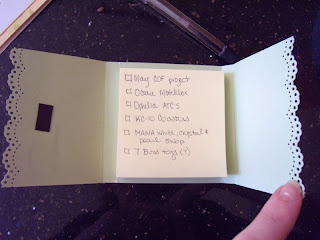 ☐ May COF project
☐ Ocean Matchbox
☐ Ophelia ATCs
☐ KC-10 Coasters
☐ MANA White, crystal &
pearl swap
☐ 7 Bow toys (?)